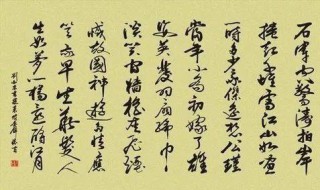 石穿空驚濤拍岸
捲起千堆雪江山如畫
一時多少豪傑遙想公瑾
當年小喬初嫁了雄
姿英發羽扇綸巾
談笑間檣櫓灰飛煙
滅故國神遊多情應
笑我早生華髮人
生如夢一樽還酹江月